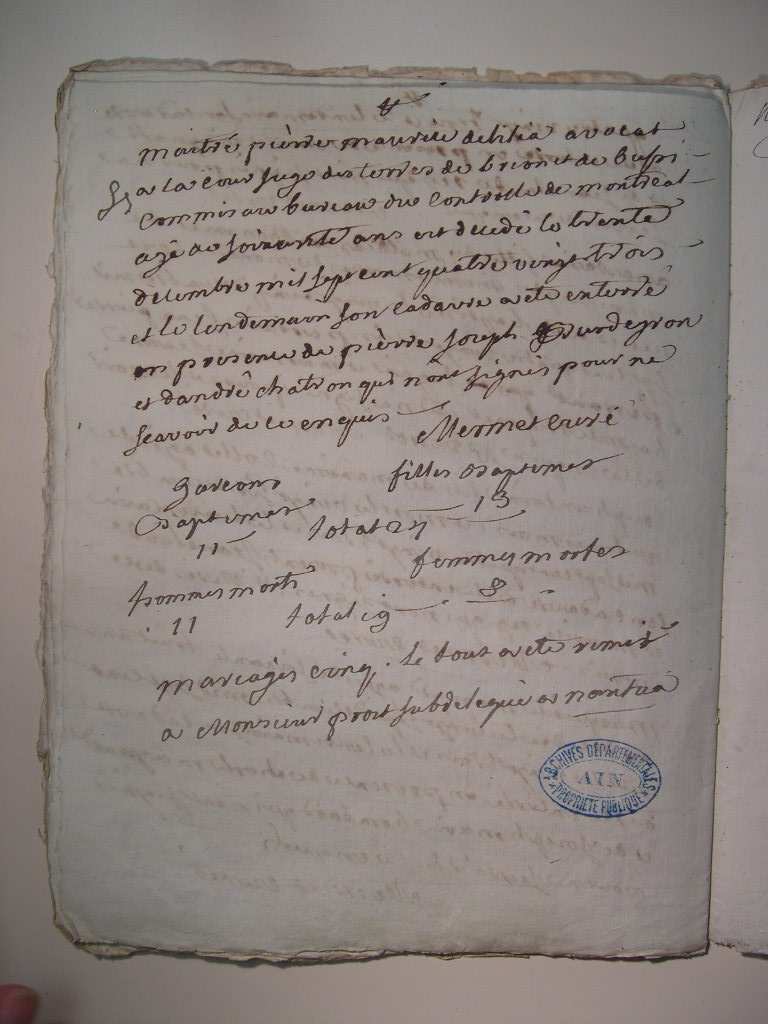 maitre pierre maurice delilia avocat
a la cour juge des terres de brion et de bussi
commis au bureau du controlle de montreal
agé de soixante ans est decedé le trente
decembre mil sept cent quatre vingt trois
et le lendemain son cadavre a eté enterré
en presence de pierre joseph Burdeyron
et d'andré chatron qui n'ont signés pour ne
scavoir de ce enquis
Mermet curé
garcons
Baptemes
11
filles Baptemes
13
total 24
hommes morts
11
femmes mortes
8
total 19
mariages cinq. le tout a eté remis
a Monsieur prost subdelegué a nantua
ARCHIVES DÉPARTEMENTALES
AIN
PROPRIÉTÉ PUBLIQUE